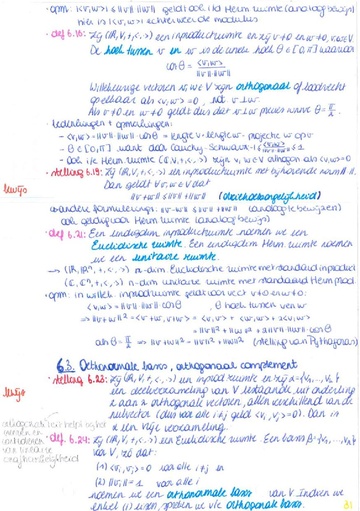 • opm: |<v,w>| ≤ ||v|| ||w|| geldt ook i/d Herm ruimte (analoog bewijs)
hier is |<v,w>| echter wel de modulus
• def 6.16: zij (ℝ,V,+,<.,.>) een inproductruimte en zij v≠0 en w≠0, v,w∈V.
De hoek tussen v en w is de unieke hoek θ∈[0,π] waarvoor
cos θ = <v,w> / ||v|| ||w||
Willekeurige vectoren v,w∈V zijn orthogonaal of loodrecht
op elkaar als <v,w> = 0, not v⊥w.
Als v≠0 en w≠0 geldt dus dat v⊥w precies wanneer θ = π/2.
• bedenkingen + opmerkingen:
- <v,w> = ||v|| ||w|| cos θ = lengte v · lengte w · projectie w op v
- θ∈[0,π] want door Cauchy-Schwarz: -1 ≤ <v,w> / ||v|| ||w|| ≤ 1
- ook i/e Herm. ruimte (ℂ,V,+,<.,.>) zijn v, w∈V orthogon als <v,w>=0
• stelling 6.19: zij (ℝ,V,+,<.,.>) een inproductruimte met bijhorende norm ||.||.
bewijs
Dan geldt ∀ v,w∈V dat
||v+w|| ≤ ||v|| + ||w|| (driehoeksongelijkheid)
ook geldig voor Herm ruimte (analoog bewijs)
• def 6.21: Een eindigdim. inproductruimte noemen we een
Euclidische ruimte. Een eindigdim Herm ruimte noemen
we een unitaire ruimte.
→ (ℝ, ℝⁿ, +, <.,.>) n-dim Euclidische ruimte met standaard inproduct
(ℂ, ℂⁿ, +, <.,.>) n-dim unitaire ruimte met standaard Herm prod.
• opm: in willek. inproductruimte geldt voor vect v≠0 en w≠0:
<v,w> = ||v|| ||w|| cos θ θ hoek tussen v en w
⇒ ||v+w||² = <v+w, v+w> = <v,v> + <w,w> + 2<v,w>
= ||v||² + ||w||² + 2||v|| ||w|| cos θ
als θ = π/2 ⇒ ||v+w||² = ||v||² + ||w||² (stelling van Pythagoras)
6.3. Orthonormale basis, orthogonaal complement
• stelling 6.23: zij (ℝ,V,+,<.,.>) een inprod ruimte en zij α={v₁,...,vₖ}
bewijs
een deelverzameling van V bestaande uit onderling
2 aan 2 orthogonale vectoren, allen verschillend van de
nulvector (dus voor alle i≠j geldt <vᵢ,vⱼ>=0). Dan is
α een vrije verzameling.
• def 6.24: zij (ℝ,V,+,<.,.>) een Euclidische ruimte. Een basis β={v₁,...,vₙ}
van V, zó dat:
(1) <vᵢ,vⱼ> = 0 voor alle i≠j en
(2) ||vᵢ|| = 1 voor alle i
noemen we een orthonormale basis van V. Indien we
enkel (1) eisen, spreken we v/e orthogonale basis.
81